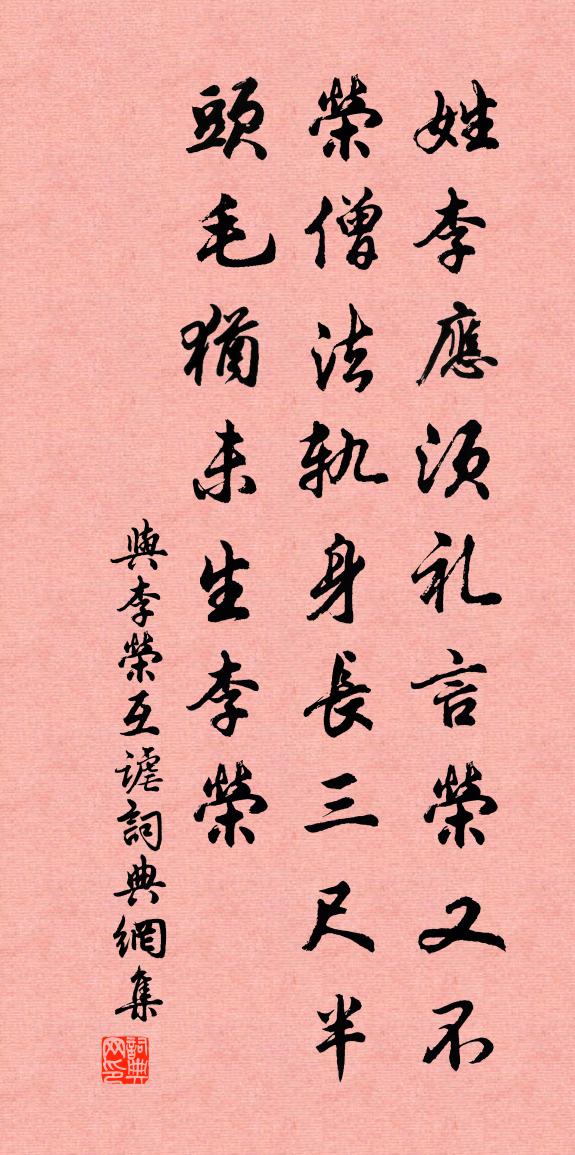 姓李應須礼言榮又不
榮僧法軌身長三尺半
頭毛猶未生李榮
與李榮互謔詞典網集
詞典网印